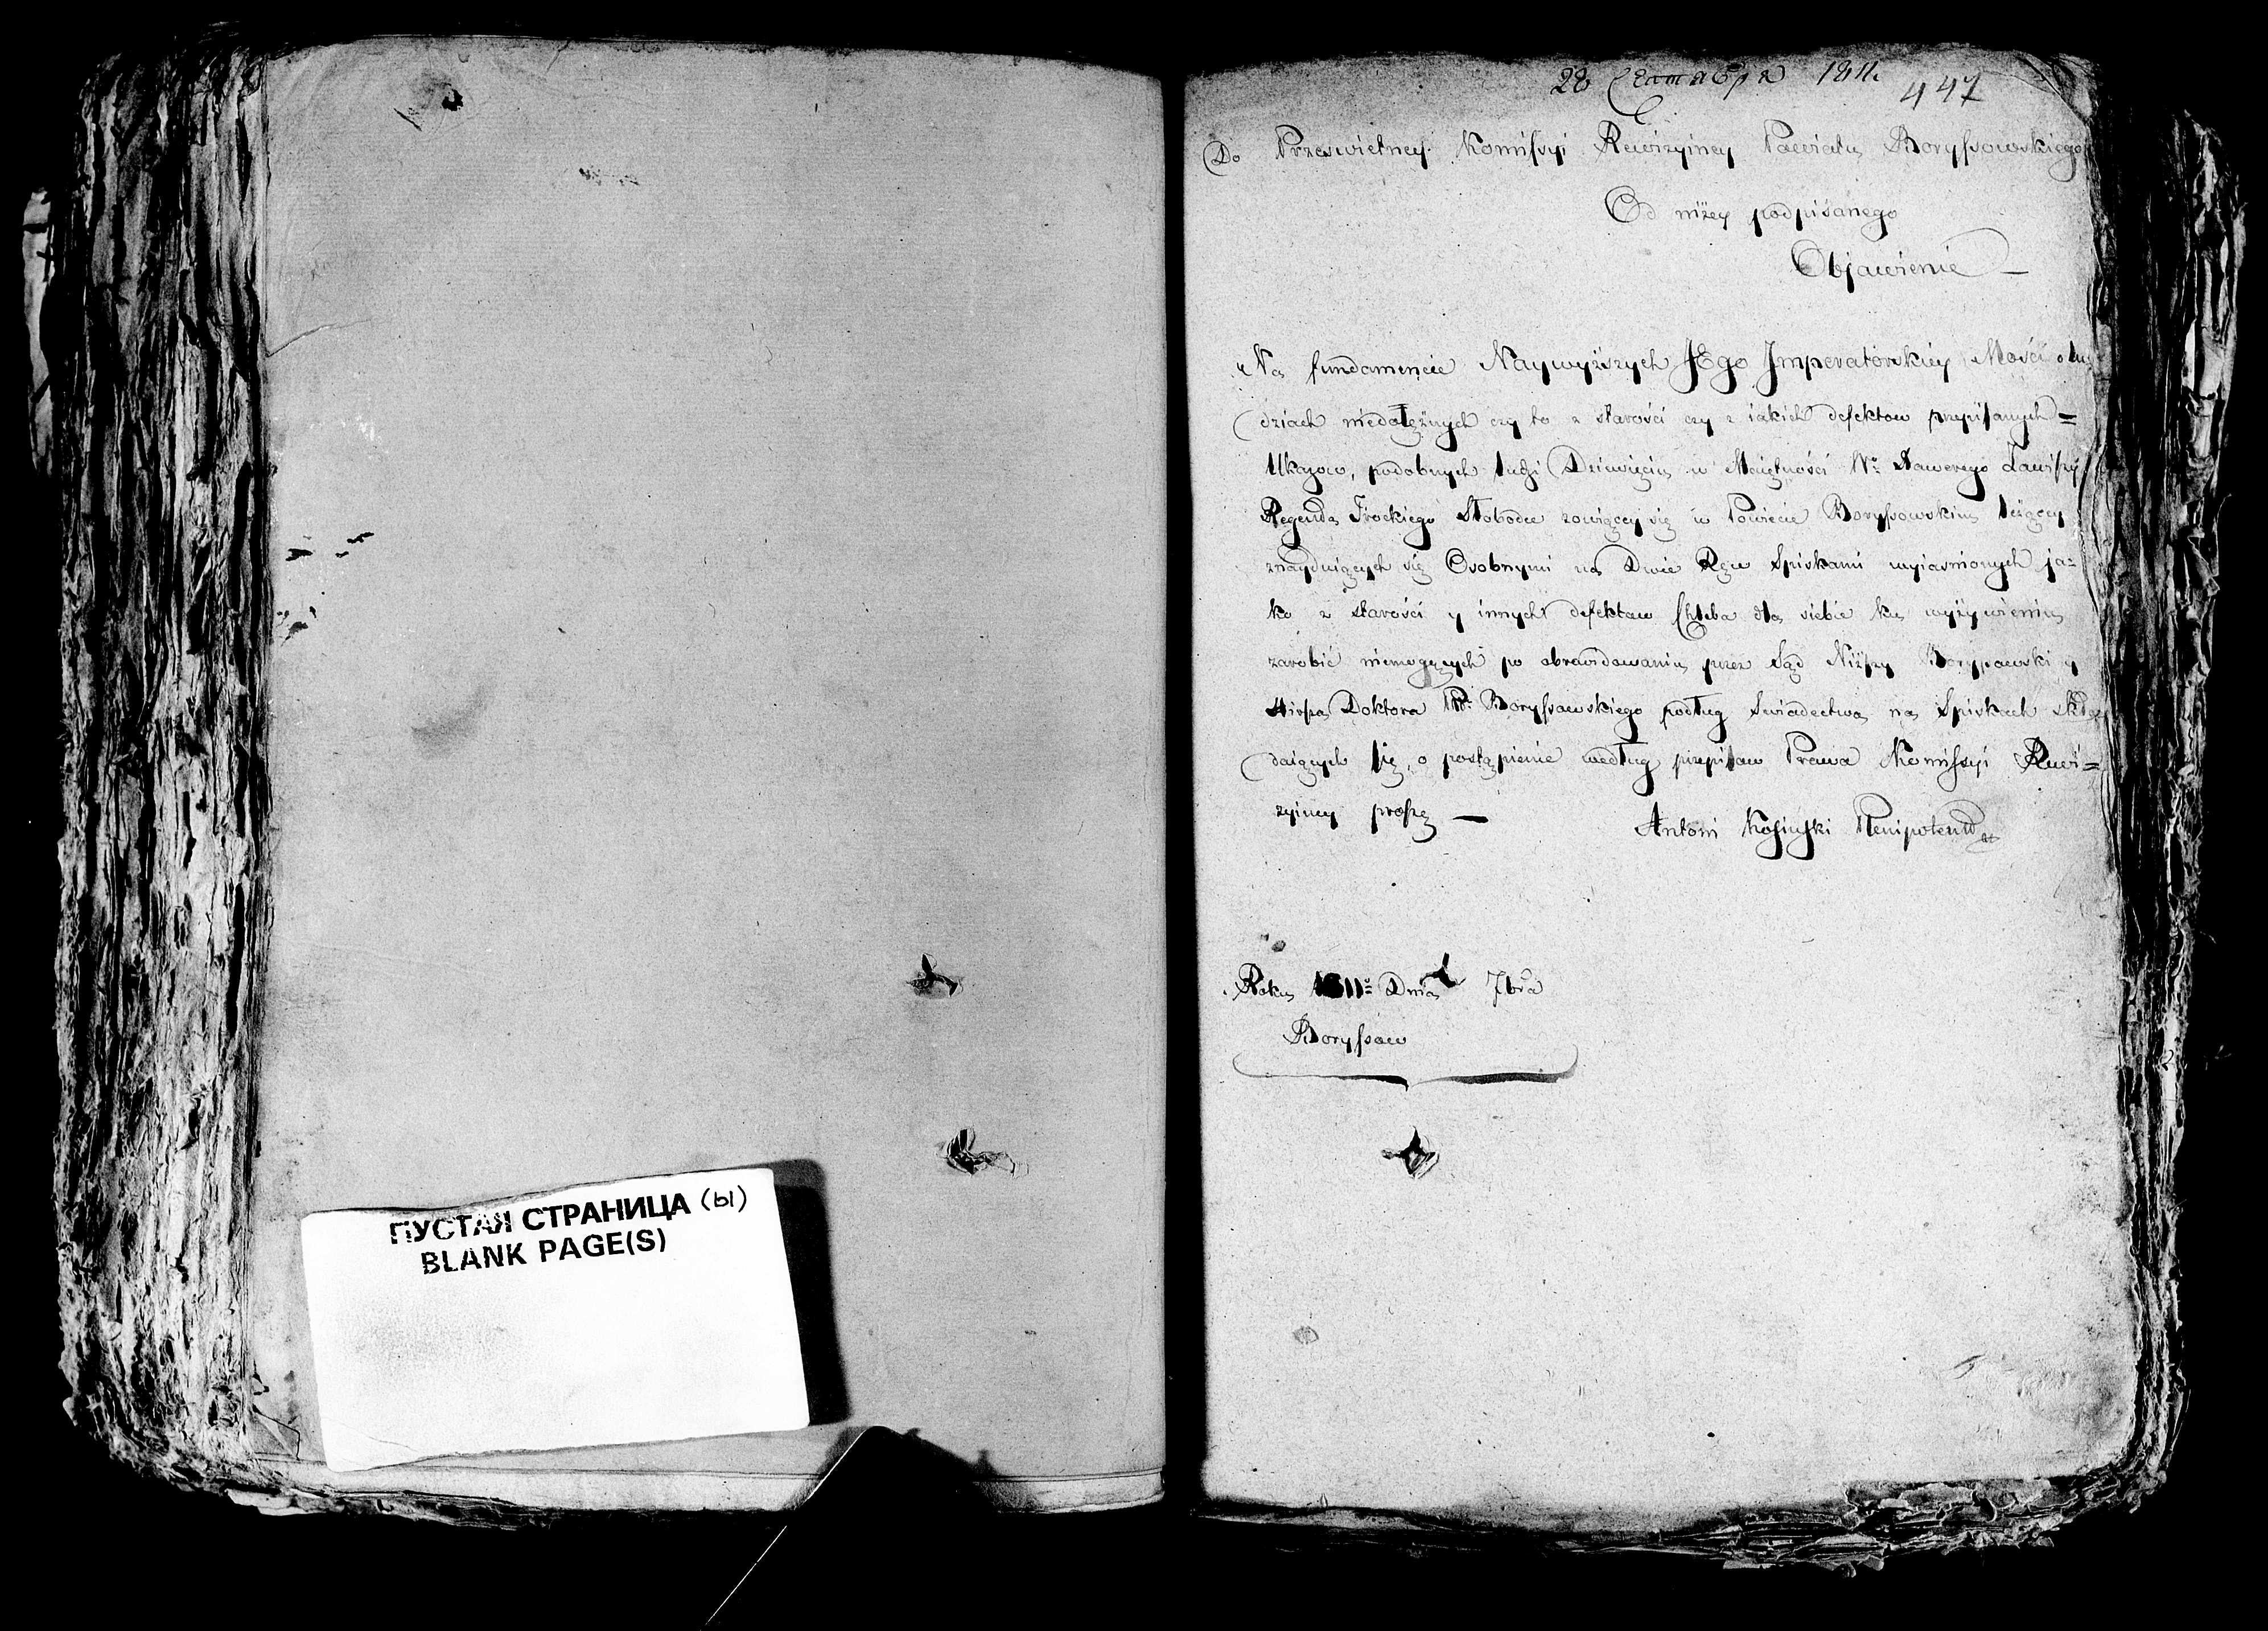 ПУСТАЯ СТРАНИЦА (ы)
BLANK PAGE(S)
28 Сентября 1811.
447
Do Prześwietney Komissyi Rewizyiney Powiatu Boryssowskiego
Od niżey podpisanego
Objawienie —
Na fundamencie Naywyższych JEgo Imperatorskiey Mości o lu-
dziach niedołężnych czy to z starości czy z iakich defektow przepisanych=
Ukazow, podobnych ludzi Dziewięciu w Maiętności Wo Xawerego Zawiszy
Regenta Trockiego Słobodce zowiącey się w Powiecie Boryssowskim leżącey
znayduiących się Osobnymi na Dwie Ręce Spiskami wyiasnionych ja=
ko z starości y innych defektow Chleba dla siebie ku wyżywieniu
zarobić niemogących po obrewidowaniu przez Sąd Niższy Boryssowski y
Doktora Pu Boryssowskiego podług Swiadectwa na Spiskach Skła
daiących się, o postąpienie według przepisow Prawa Komissyi Rewi=
zyiney proszę —
Antoni Kosiński Plenipotent
Roku 1811o Dnia 7bra
Boryssow